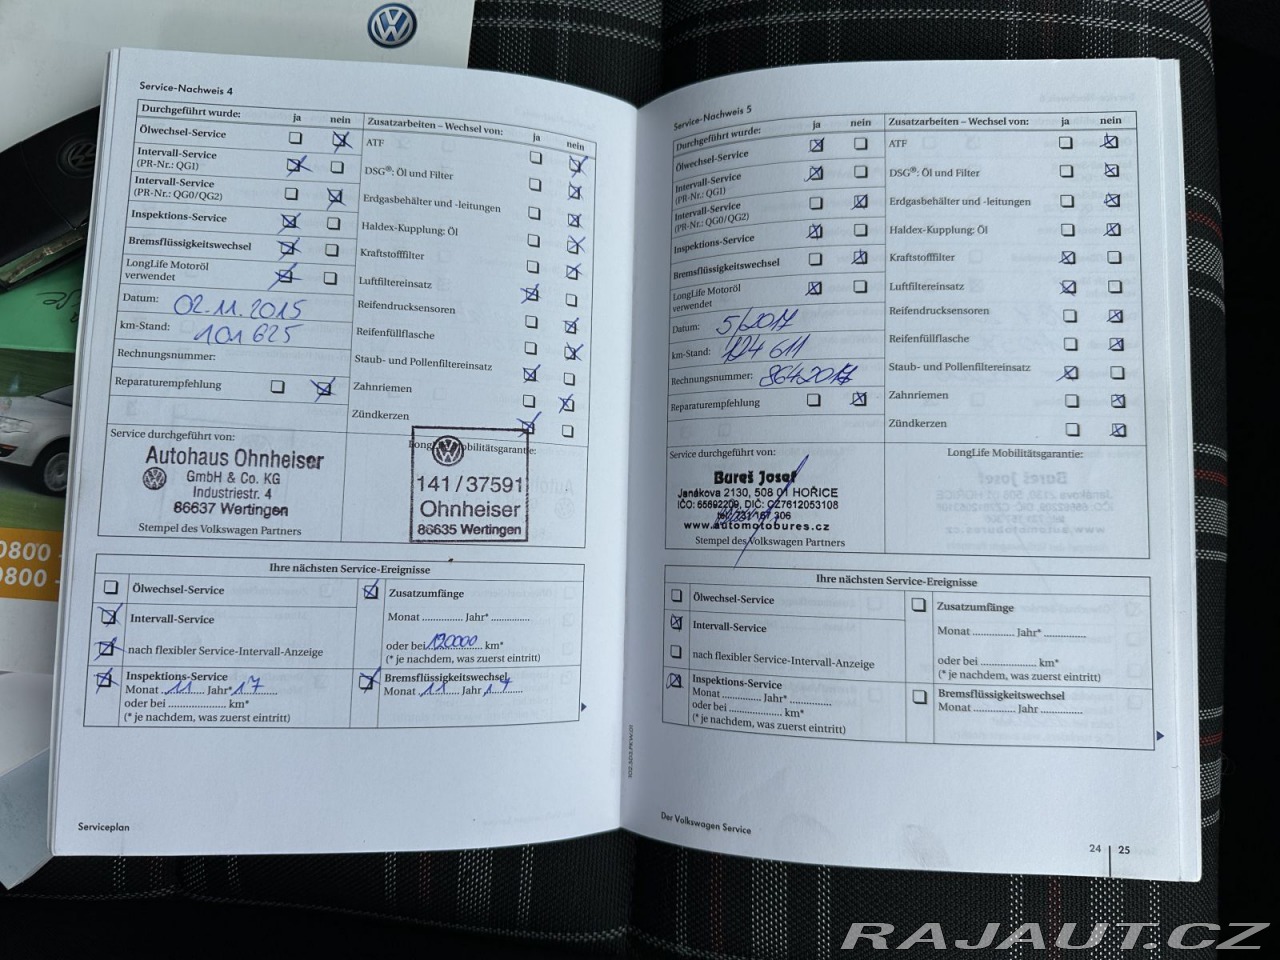 Service-Nachweis 4
Durchgeführt wurde: ja nein
Ölwechsel-Service
Intervall-Service
(PR-Nr.: QG1)
Intervall-Service
(PR-Nr.: QG0/QG2)
Inspektions-Service
Bremsflüssigkeitswechsel
LongLife Motoröl
verwendet
Datum: 02.11.2015
km-Stand: 101 625
Rechnungsnummer:
Reparaturempfehlung
Zusatzarbeiten – Wechsel von: ja nein
ATF
DSG®: Öl und Filter
Erdgasbehälter und -leitungen
Haldex-Kupplung: Öl
Kraftstofffilter
Luftfiltereinsatz
Reifendrucksensoren
Reifenfüllflasche
Staub- und Pollenfiltereinsatz
Zahnriemen
Zündkerzen
Service durchgeführt von:
Autohaus Ohnheiser
GmbH & Co. KG
Industriestr. 4
86637 Wertingen
Stempel des Volkswagen Partners
LongLife Mobilitätsgarantie:
141/37591
Ohnheiser
86635 Wertingen
Ihre nächsten Service-Ereignisse
Ölwechsel-Service
Intervall-Service
nach flexibler Service-Intervall-Anzeige
Inspektions-Service
Monat 11 Jahr* 17
oder bei .................... km*
(* je nachdem, was zuerst eintritt)
Zusatzumfänge
Monat .............. Jahr* .............
oder bei 120000 km*
(* je nachdem, was zuerst eintritt)
Bremsflüssigkeitswechsel
Monat 11 Jahr 17
Serviceplan
Service-Nachweis 5
Durchgeführt wurde: ja nein
Ölwechsel-Service
Intervall-Service
(PR-Nr.: QG1)
Intervall-Service
(PR-Nr.: QG0/QG2)
Inspektions-Service
Bremsflüssigkeitswechsel
LongLife Motoröl
verwendet
Datum: 5/2017
km-Stand: 124 611
Rechnungsnummer: 8642017
Reparaturempfehlung
Zusatzarbeiten – Wechsel von: ja nein
ATF
DSG®: Öl und Filter
Erdgasbehälter und -leitungen
Haldex-Kupplung: Öl
Kraftstofffilter
Luftfiltereinsatz
Reifendrucksensoren
Reifenfüllflasche
Staub- und Pollenfiltereinsatz
Zahnriemen
Zündkerzen
Service durchgeführt von:
Bureš Josef
Janákova 2130, 508 01 HOŘICE
IČO: 65692209, DIČ: CZ7612053108
www.automotobures.cz
Stempel des Volkswagen Partners
LongLife Mobilitätsgarantie:
Ihre nächsten Service-Ereignisse
Ölwechsel-Service
Intervall-Service
nach flexibler Service-Intervall-Anzeige
Inspektions-Service
Monat .............. Jahr* .............
oder bei .................... km*
(* je nachdem, was zuerst eintritt)
Zusatzumfänge
Monat .............. Jahr* .............
oder bei .................... km*
(* je nachdem, was zuerst eintritt)
Bremsflüssigkeitswechsel
Monat .............. Jahr ..............
Der Volkswagen Service
24 | 25
0800
0800
RAJAUT.CZ